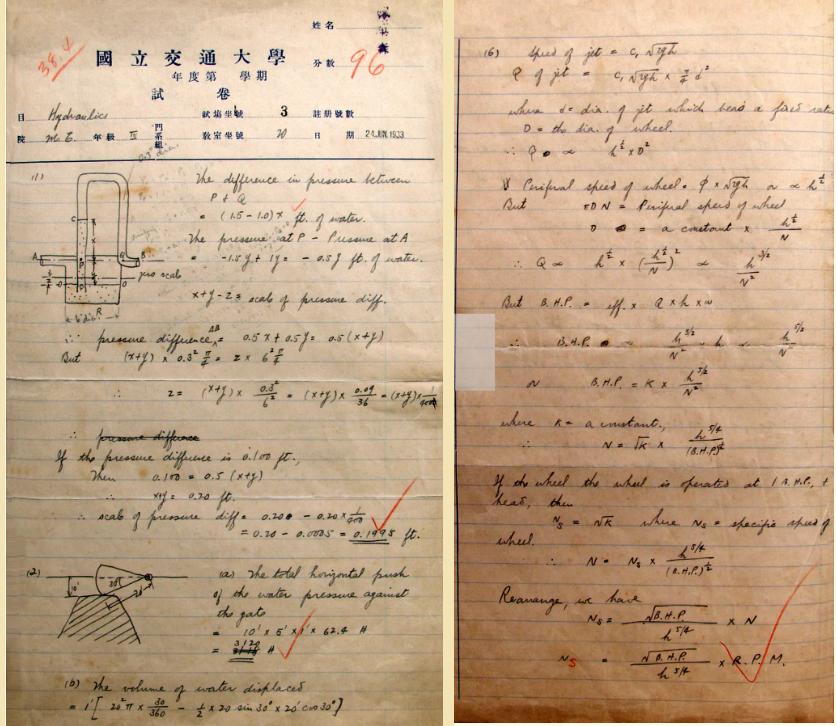 姓名
38.4
國立交通大學
分數 96
年度第 學期
試卷
目 Hydraulics 試場坐號 3 註册號數
院 M.E. 年級 III 門系組 教室坐號 20 日期 24 JUN. 1933
(1) The difference in pressure between
P & Q
= (1.5-1.0)x ft. of water.
The pressure at P - Pressure at A
= -1.5y + 1y = -0.5y ft. of water.
zero scale
x+y-z = scale of pressure diff.
∴ pressure difference AB = 0.5x + 0.5y = 0.5(x+y)
But (x+y) × 0.3² π/4 = z × 6² π/4
∴ z = (x+y) × 0.3²/6² = (x+y) × 0.09/36 = (x+y) × 1/400
∴ pressure difference
If the pressure difference is 0.100 ft.,
Then 0.100 = 0.5 (x+y)
∴ x+y = 0.20 ft.
∴ scale of pressure diff = 0.200 - 0.20 × 1/400
= 0.20 - 0.0005 = 0.1995 ft.
(2) (a) The total horizontal push
of the water pressure against
the gate
10' 30° 20'
= 10' × 5' × 1' × 62.4 #
= 3120 #
(b) The volume of water displaced
= 1' [ 20² π × 30/360 - 1/2 × 20 sin 30° × 20' cos 30° ]
(6) Speed of jet = c, √2gh
Q of jet = c, √2gh × π/4 d²
where d = dia. of jet which bears a fixed
D = the dia. of wheel.
∴ Q ∝ h^1/2 × D²
Periferal speed of wheel = φ × √2gh or ∝ h^1/2
But πDN = Periferal speed of wheel
D = a constant × h^1/2/N
∴ Q ∝ h^1/2 × (h^1/2/N)² ∝ h^3/2/N²
But B.H.P. = eff. × Q × h × w
∴ B.H.P. ∝ h^3/2/N² · h ∝ h^5/2/N²
or B.H.P. = K × h^5/2/N²
where K = a constant.,
∴ N = √K × h^5/4/(B.H.P.)^1/2
If the wheel the wheel is operated at 1 B.H.P., +
head, then
Ns = √K where Ns = specific speed of
wheel.
∴ N = Ns × h^5/4/(B.H.P.)^1/2
Rearrange, we have
Ns = √B.H.P./h^5/4 × N
Ns = √B.H.P./h^5/4 × R.P.M.